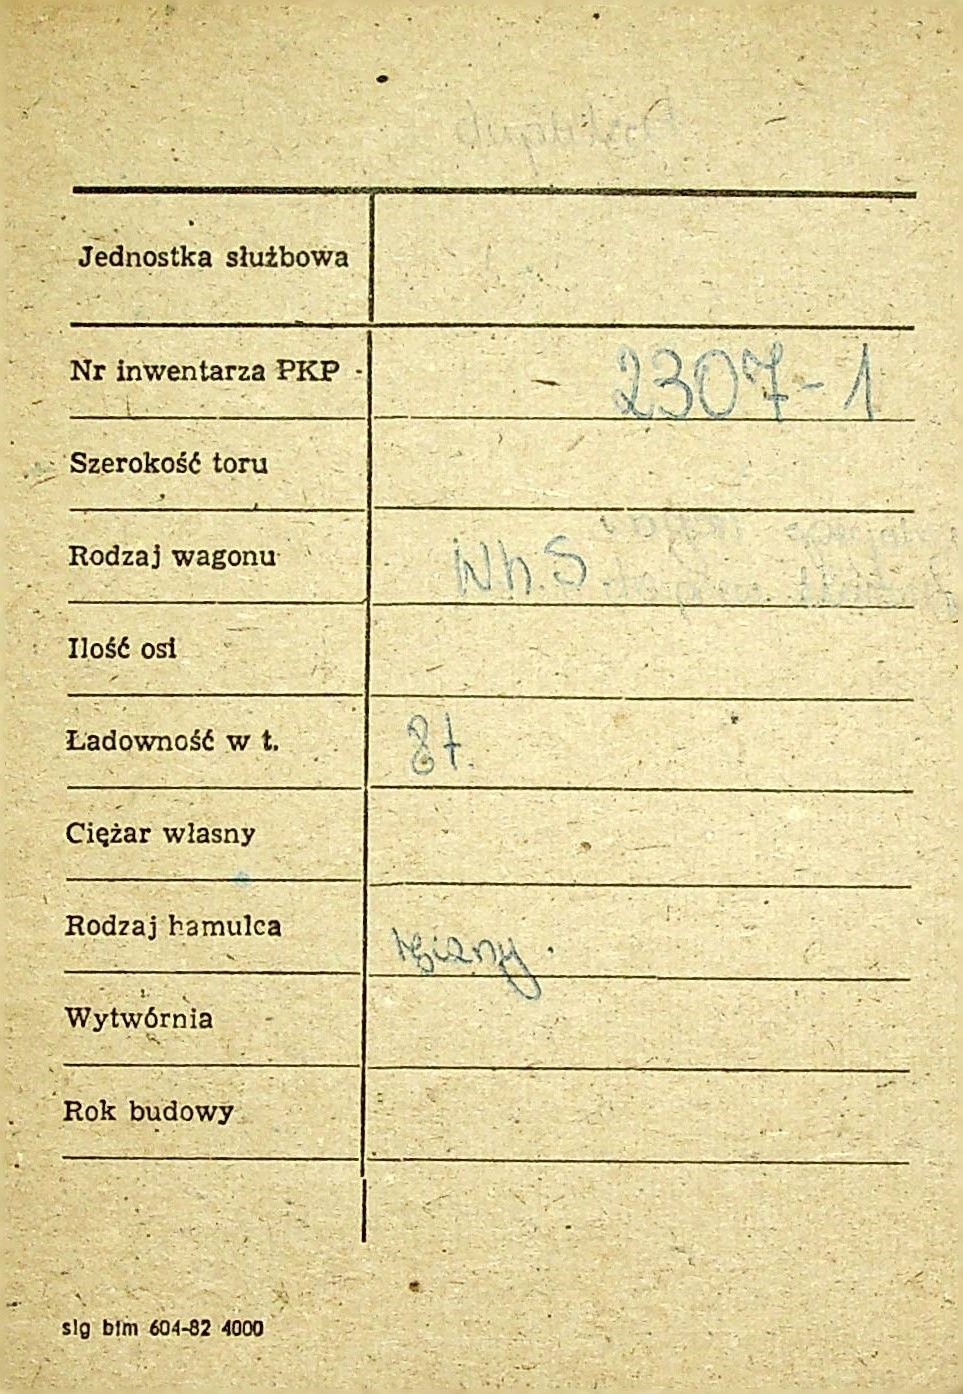 Jednostka służbowa
Nr inwentarza PKP 2307-1
Szerokość toru
Rodzaj wagonu Wh.S
Ilość osi
Ładowność w t. 8t.
Ciężar własny
Rodzaj hamulca ręczny.
Wytwórnia
Rok budowy
slg blm 604-82 4000